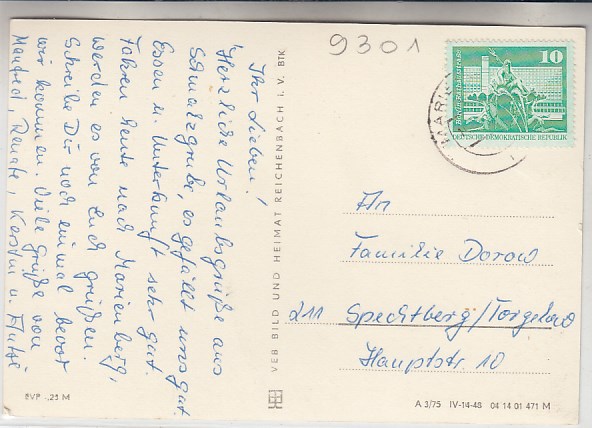 9301
Ihr Lieben!
Herzliche Urlaubsgrüße aus
Schmalzgrube, es gefällt uns gut.
Essen u. Unterkunft sehr gut.
Fahren heute nach Marienberg,
werden es von Euch grüßen.
Schreibe Dir noch einmal bevor
wir kommen. Viele Grüße von
Manfred, Renate, Kerstin u.
EVP -,25 M
VEB BILD UND HEIMAT REICHENBACH I. V. BTK
10
DEUTSCHE DEMOKRATISCHE REPUBLIK
MARIE
An
Familie Dorow
211 Spechtberg/Torgelow
Hauptstr. 10
A 3/75 IV-14-48 04 14 01 471 M